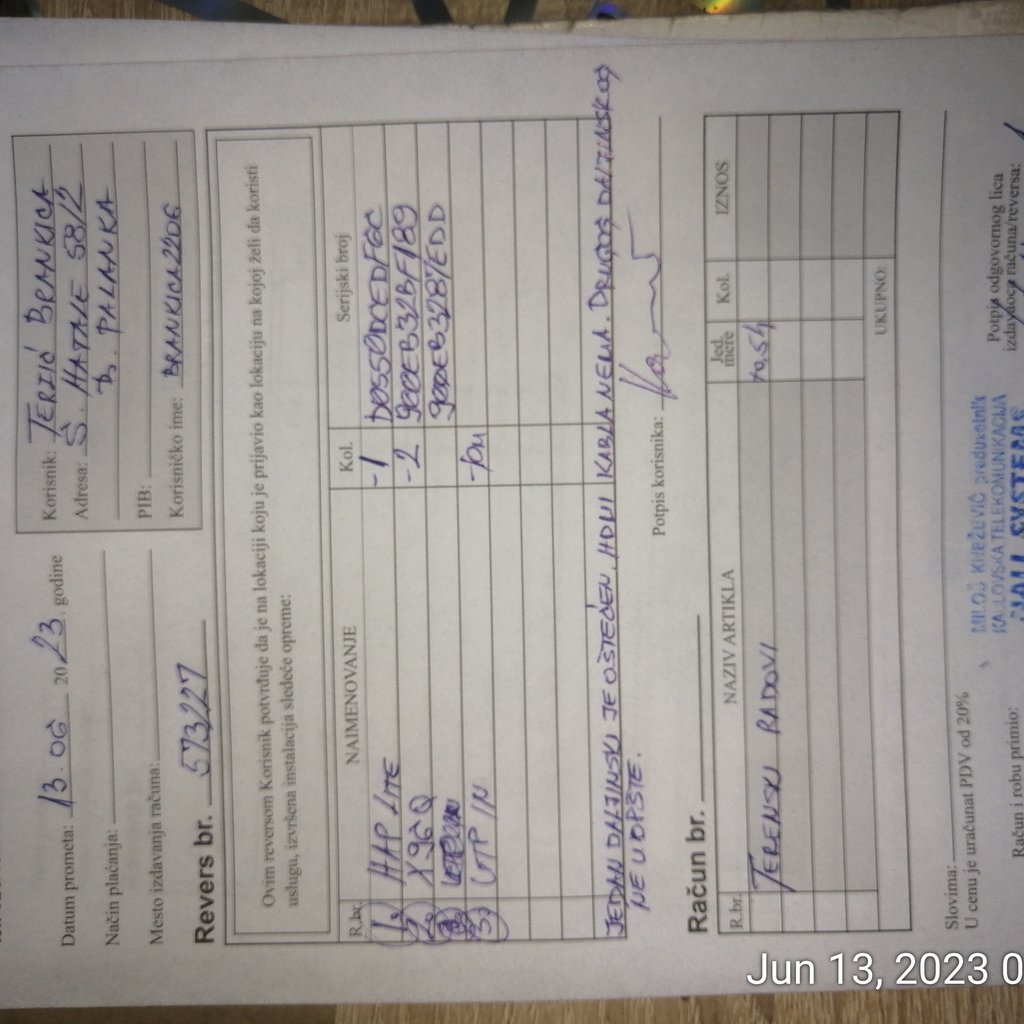 Datum prometa: 13.06 2023. godine
Način plaćanja:
Mesto izdavanja računa:
Korisnik: TERZIĆ BRANKICA
Adresa: Š. MATAJE 58/2
B. PALANKA
PIB:
Korisničko ime: BRANKICA2206
Revers br. 573/227
Ovim reversom Korisnik potvrđuje da je na lokaciji koju je prijavio kao lokaciju na kojoj želi da koristi
uslugu, izvršena instalacija sledeće opreme:
R.br. NAIMENOVANJE Kol. Serijski broj
1. HAP LITE -1
2. X96Q -2 90DEEB32BF189
90DEEB3287EDD
3. UTP IN
JEDAN DALJINSKI JE OŠTEĆEN, HDMI KABLA NEMA. DRUGOG DALJINSKOG
NE UOPŠTE.
Potpis korisnika:
Račun br.
R.br. NAZIV ARTIKLA Jed. mere Kol. IZNOS
TERENSKI RADOVI
UKUPNO:
Slovima:
U cenu je uračunat PDV od 20%
MILOŠ KNEŽEVIĆ preduzetnik
KABLOVSKA TELEKOMUNIKACIJA
SYSTEMS
Račun i robu primio:
Potpis odgovornog lica
izdavaoca računa/reversa:
Jun 13, 2023 0